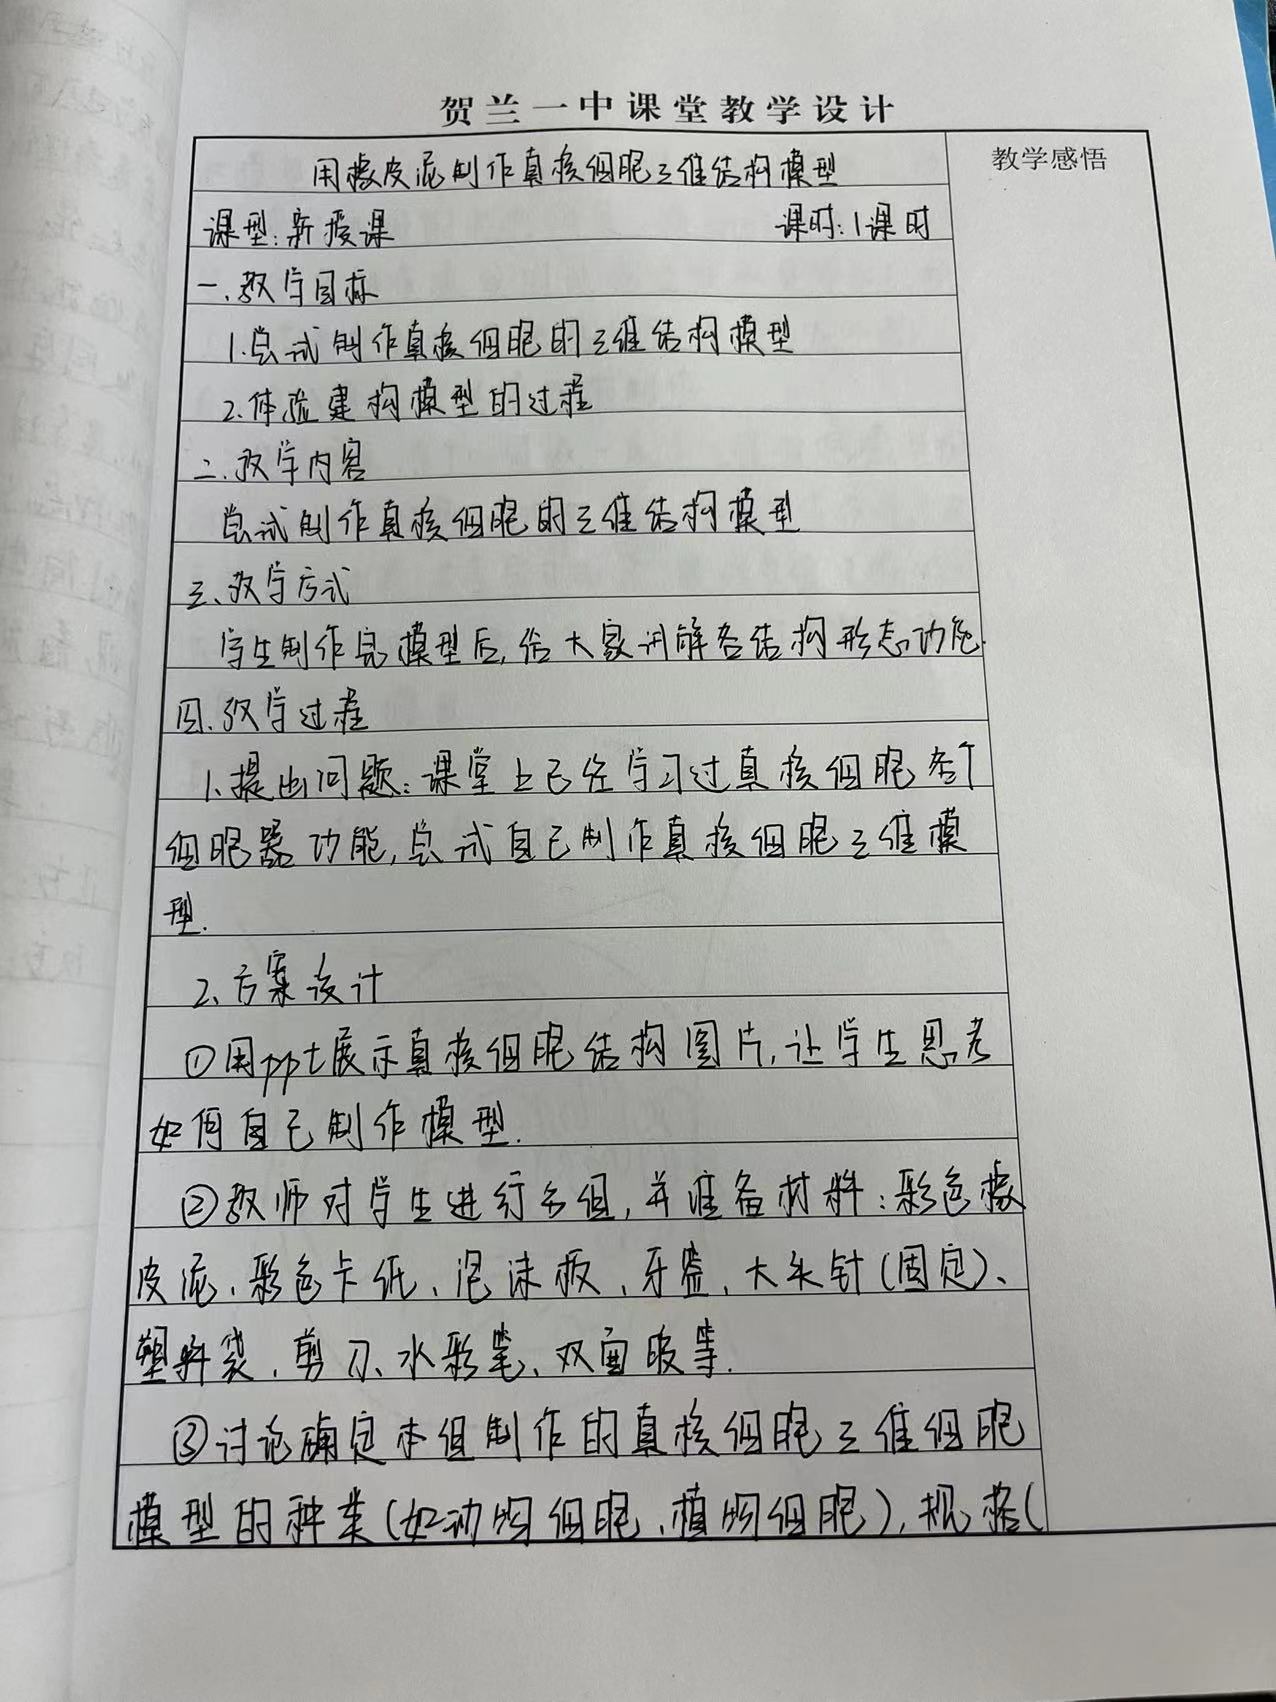 贺兰一中课堂教学设计
教学感悟
用橡皮泥制作真核细胞三维结构模型
课型:新授课 课时:1课时
一.教学目标
1.尝试制作真核细胞的三维结构模型
2.体验建构模型的过程
二.教学内容
尝试制作真核细胞的三维结构模型
三、教学方式
学生制作完模型后,给大家讲解各结构形态功能.
四.教学过程
1.提出问题:课堂上已经学习过真核细胞各个
细胞器功能,尝试自己制作真核细胞三维模
型.
2.方案设计
①用ppt展示真核细胞结构图片,让学生思考
如何自己制作模型.
②教师对学生进行分组,并准备材料:彩色橡
皮泥、彩色卡纸、泡沫板、牙签、大头针(固定)、
塑料袋、剪刀、水彩笔、双面胶等.
③讨论确定本组制作的真核细胞三维细胞
模型的种类(如动物细胞、植物细胞),规格(